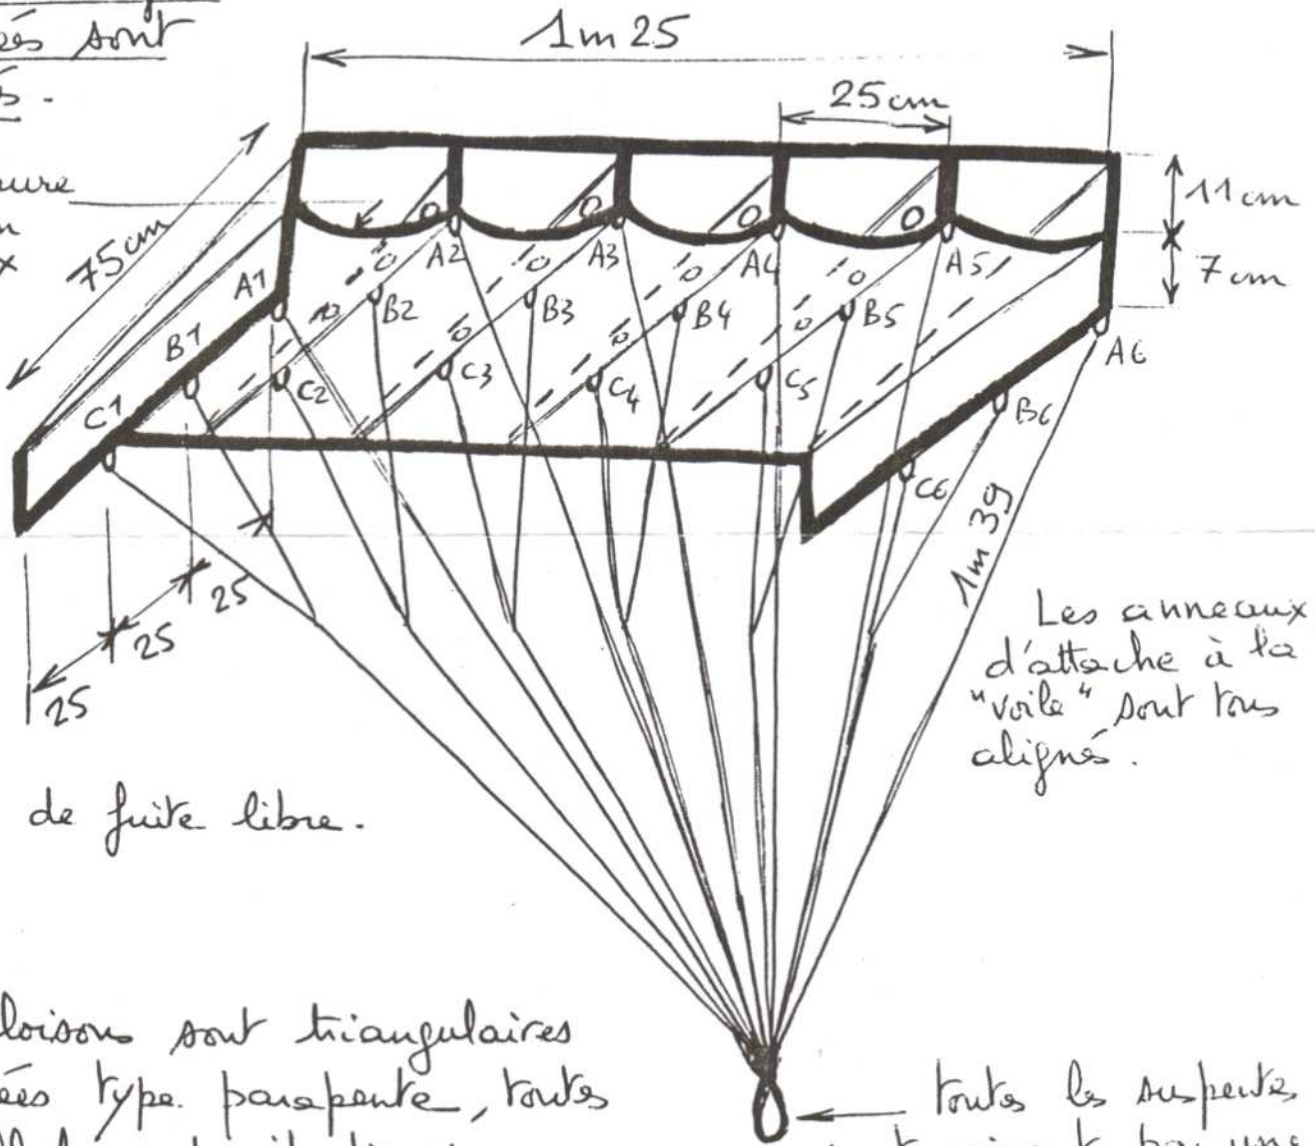 sont
1m25
25cm
11cm
7cm
75cm
A1
A2
A3
A4
A5
A6
B1
B2
B3
B4
B5
B6
C1
C2
C3
C4
C5
C6
25
25
25
1m39
Les anneaux
d'attache à la
"voile" sont tous
alignés.
de fuite libre.
sont triangulaires
type parapente, toutes
toutes les suspentes